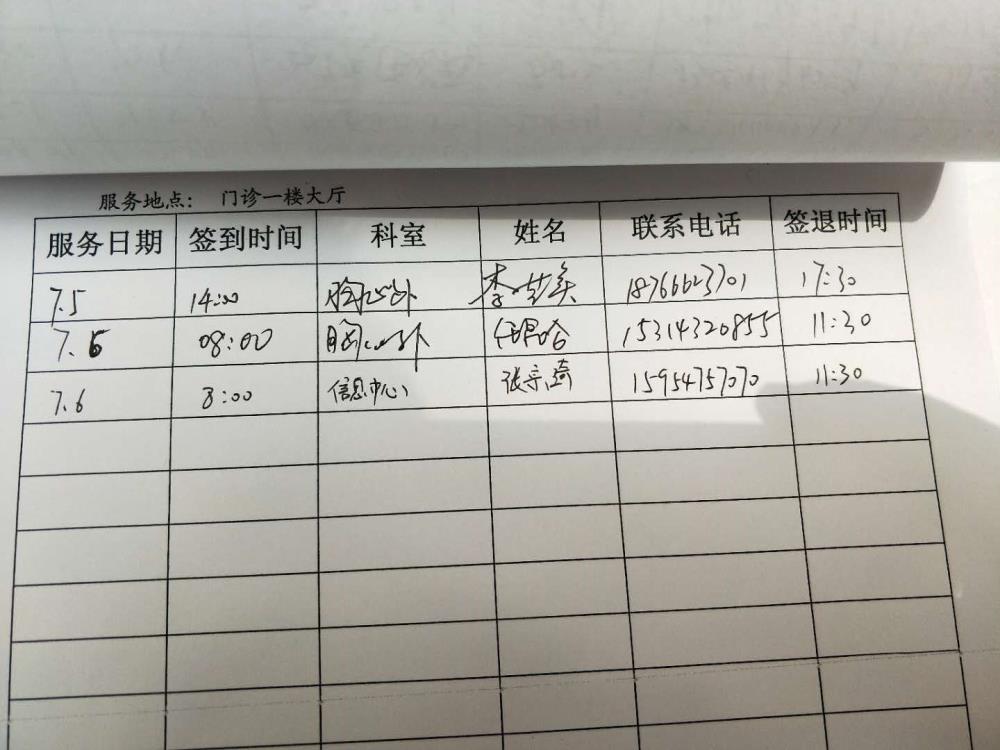 服务地点： 门诊一楼大厅
服务日期 签到时间 科室 姓名 联系电话 签退时间
7.5 14:00 胸心外 李 18766623701 17:30
7.6 08:00 胸心外 15314320855 11:30
7.6 8:00 信息中心 张宗琦 15954757070 11:30